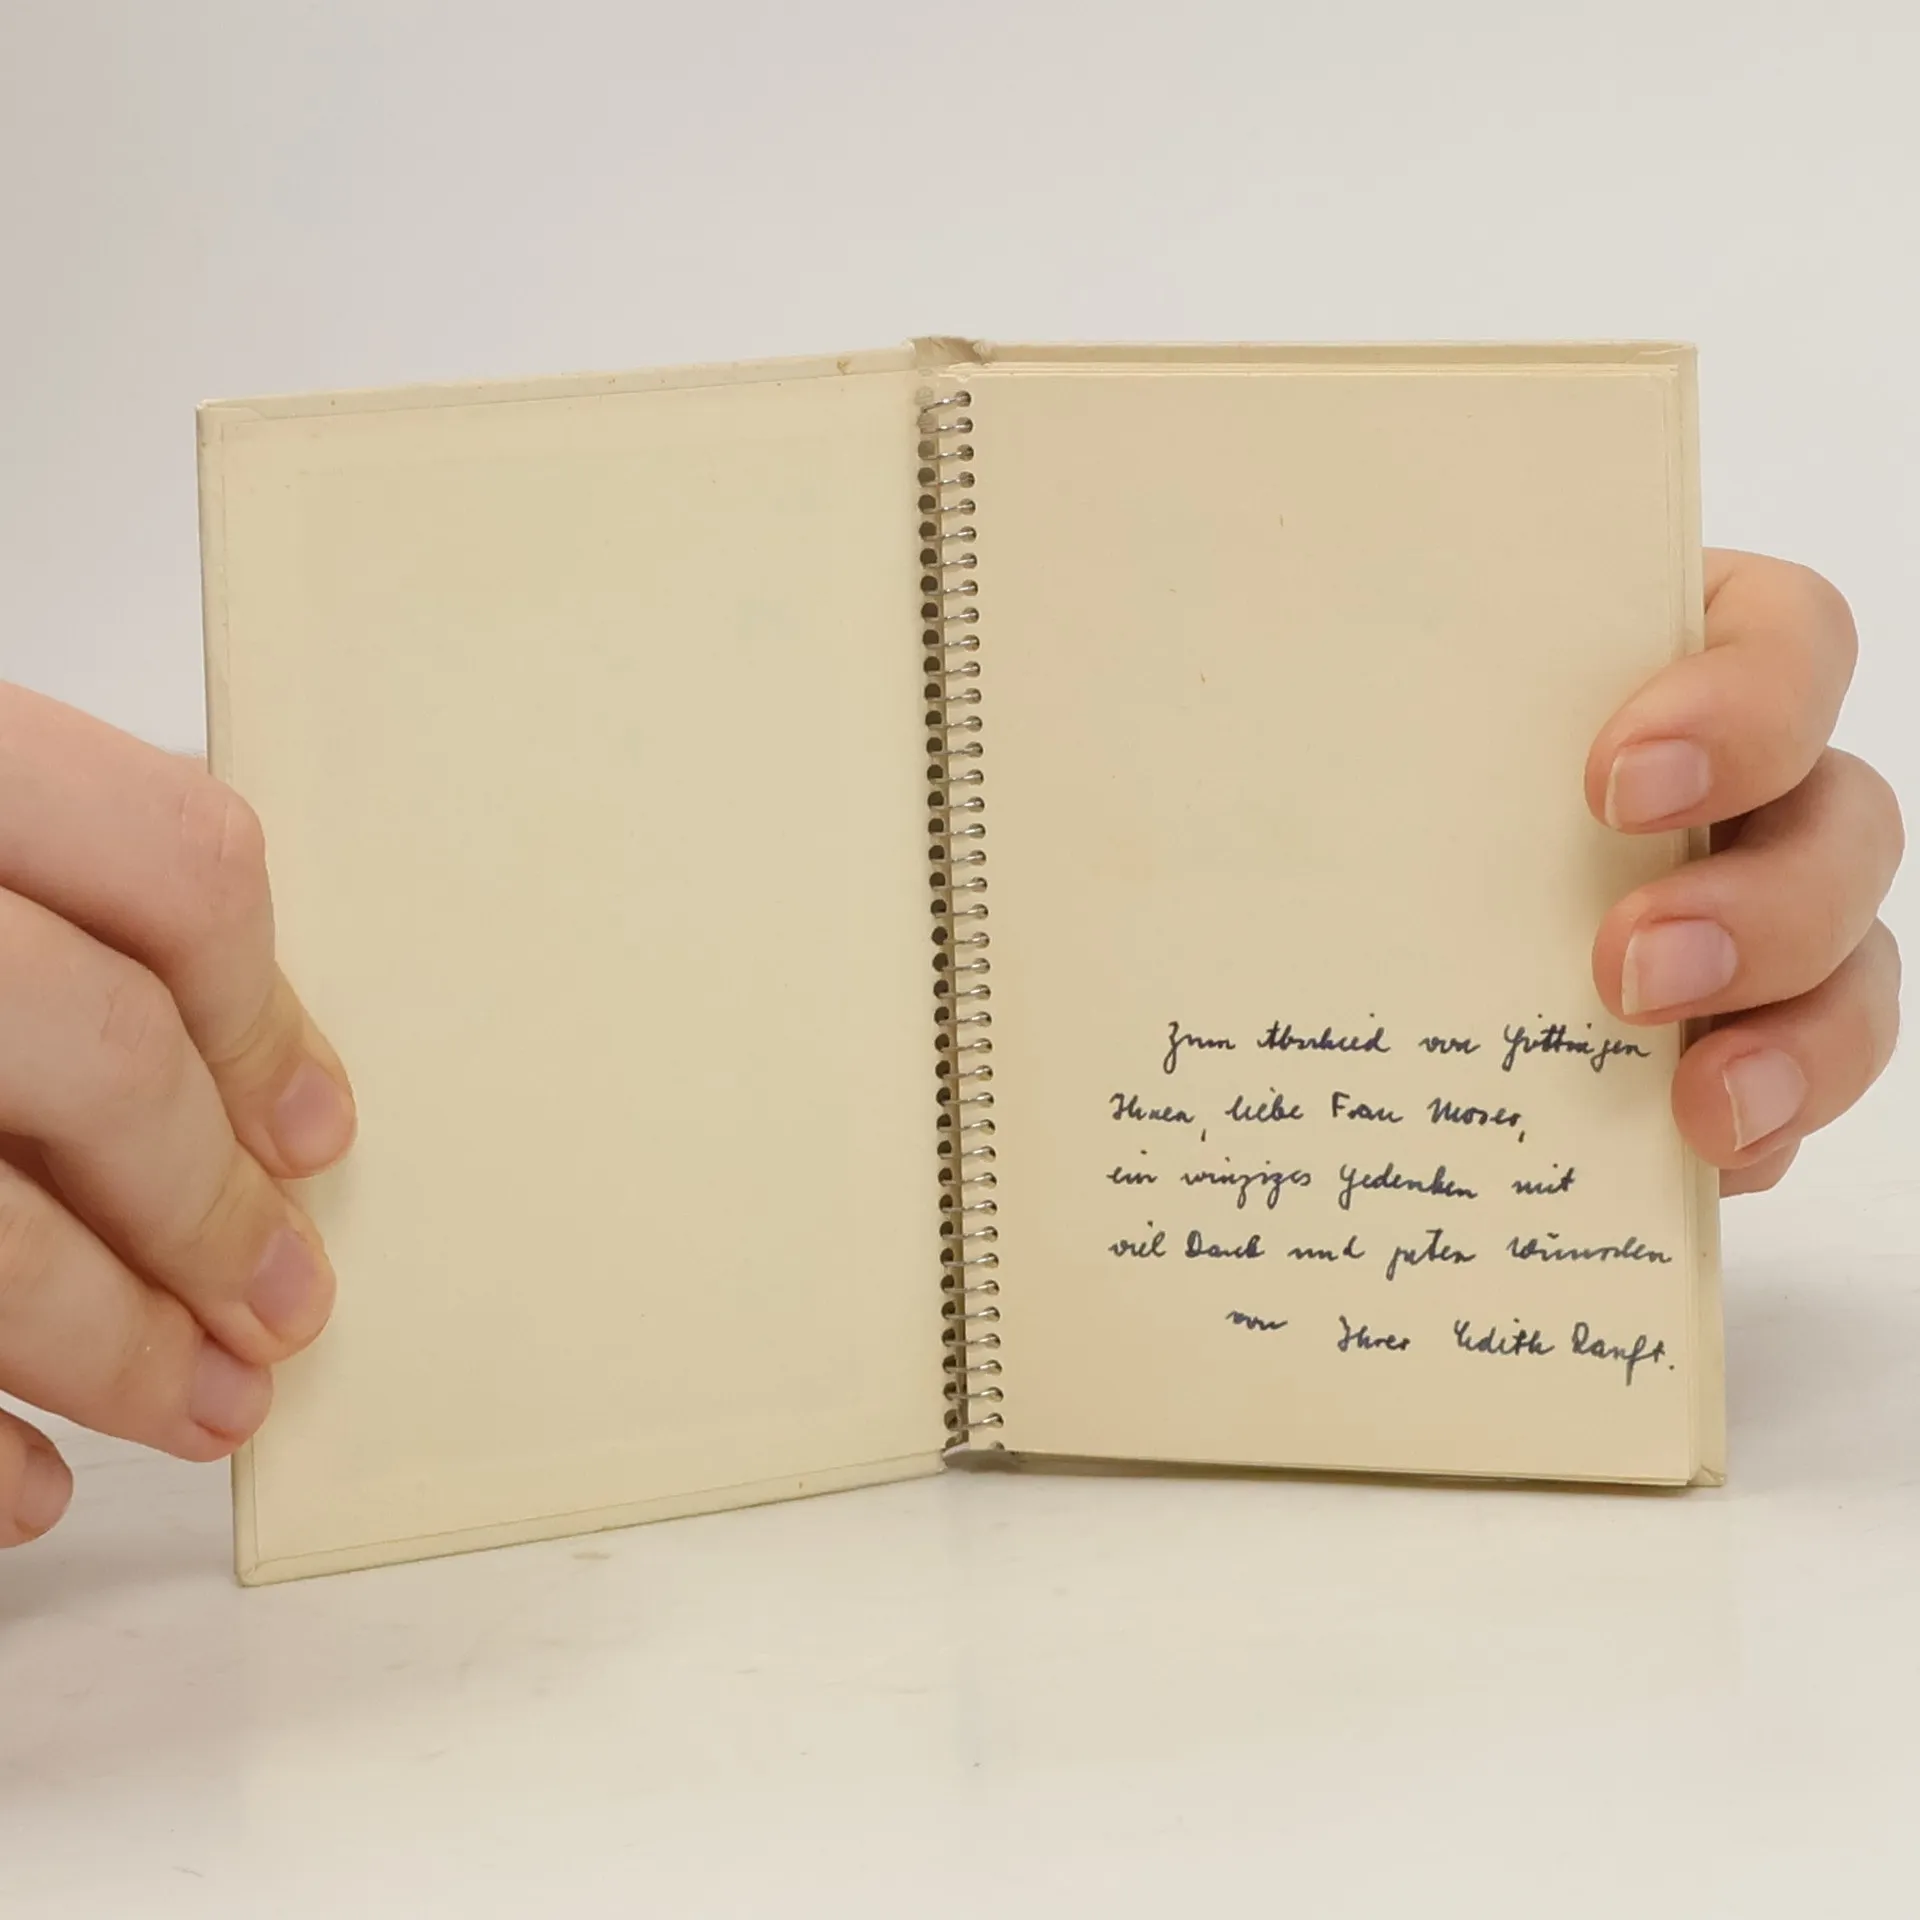 Zum Abschied von Göttingen
Ihnen, liebe Frau Moser,
ein winziges Gedenken mit
viel Dank und guten Wünschen
von Ihrer Edith Ranft.